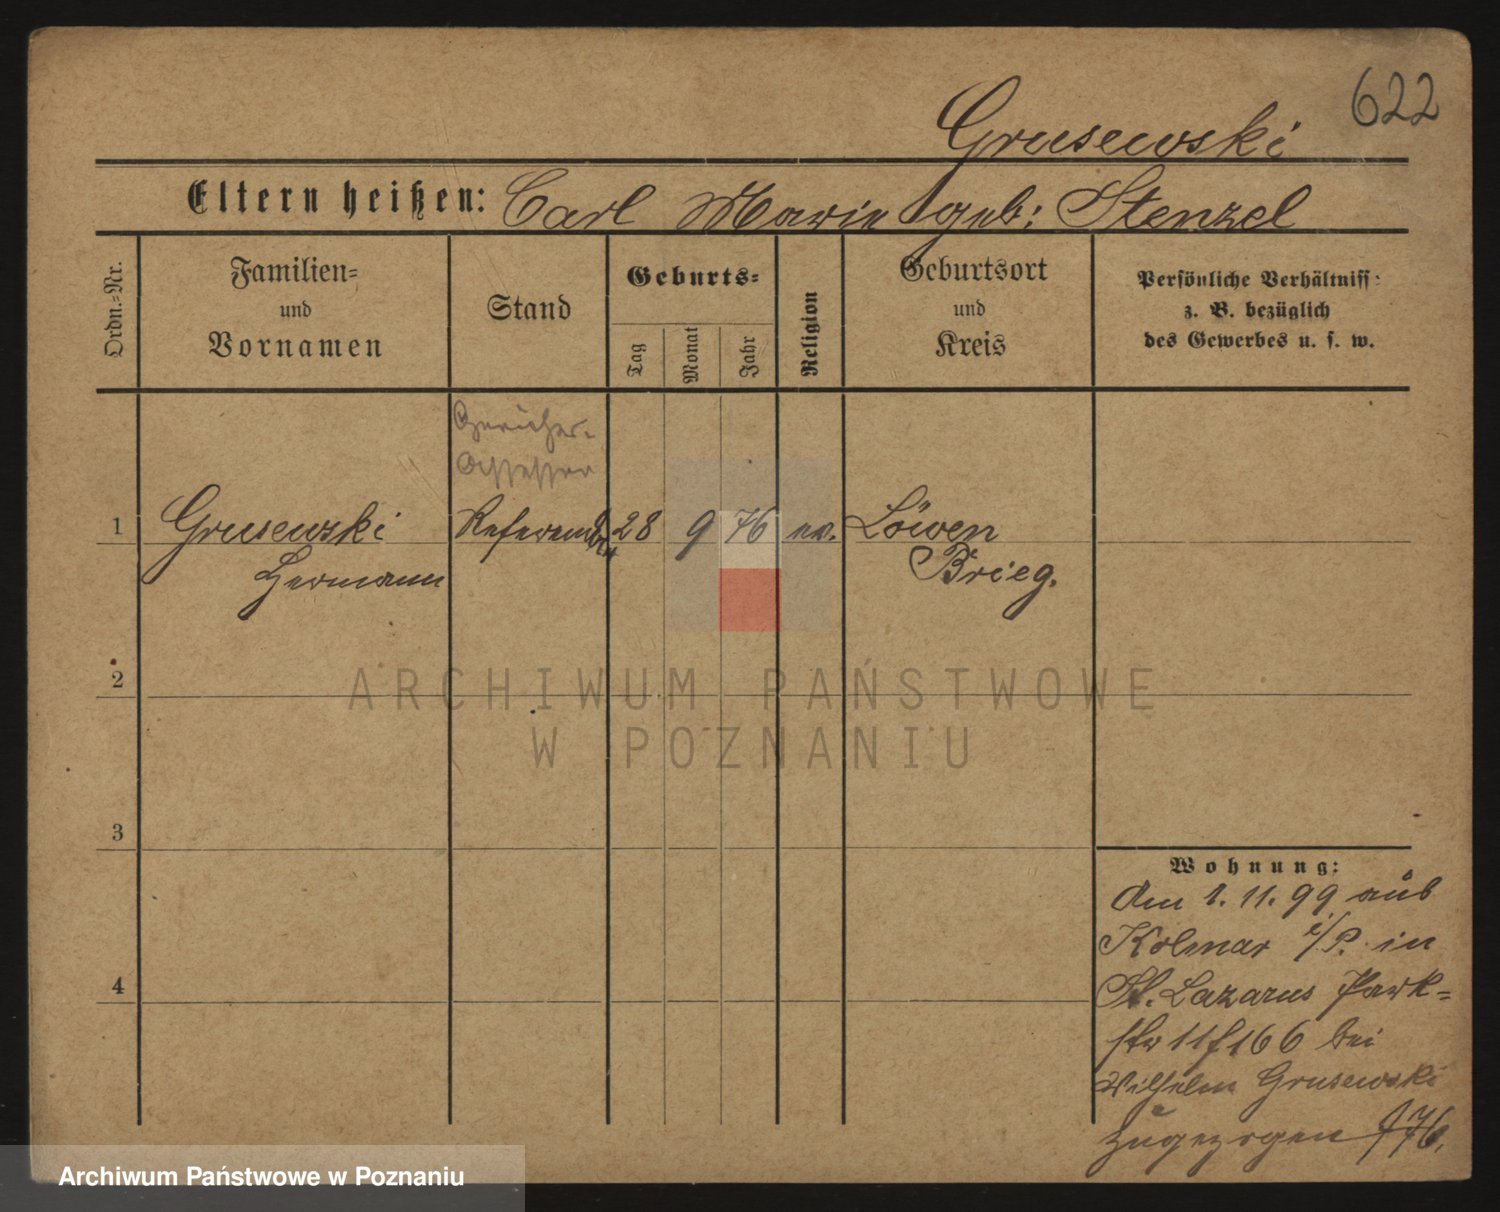 622
Grusewski
Eltern heißen: Carl Marie geb: Stenzel
Ordn.-Nr.
Familien-
und
Vornamen
Stand
Geburts-
Tag
Monat
Jahr
Religion
Geburtsort
und
Kreis
Persönliche Verhältniss
z. B. bezüglich
des Gewerbes u. s. w.
Gerichts-
Assessor
1 Grusewski Referendar 28 9 76 ev. Löwen
Hermann Brieg.
2
3
4
Wohnung:
Am 1. 11. 99 aus
Kolmar i/P. in
St. Lazarus Park-
str 11 166 bei
Wilhelm Grusewski
zugezogen
ARCHIWUM PAŃSTWOWE
W POZNANIU
Archiwum Państwowe w Poznaniu